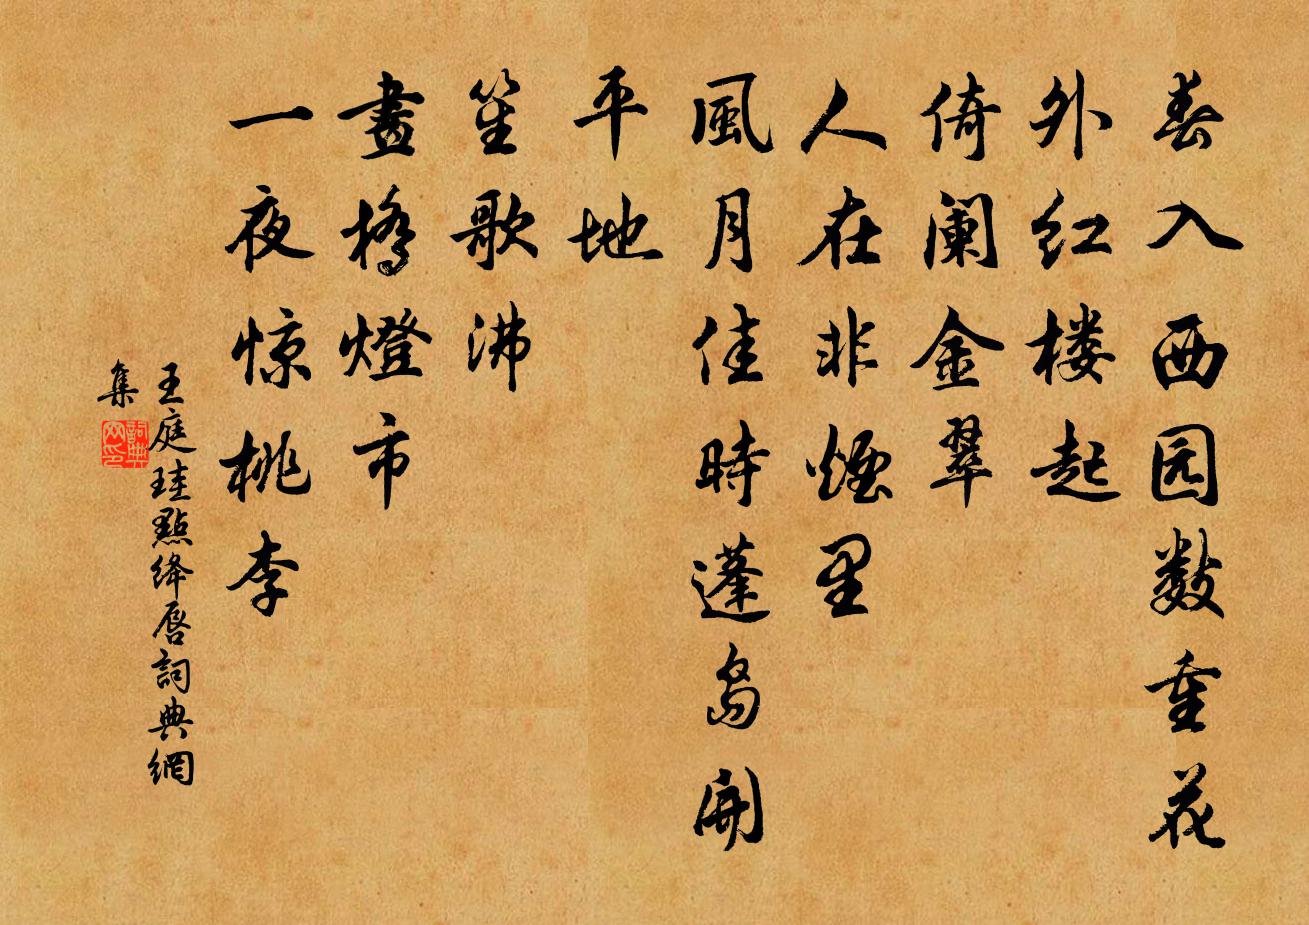 春入西园数重花
外红楼起
倚阑金翠
人在非煙里
風月佳時蓬岛開
平地
笙歌沸
畫橋燈市
一夜惊桃李
王庭珪點绛唇詞典網
集
詞典网印